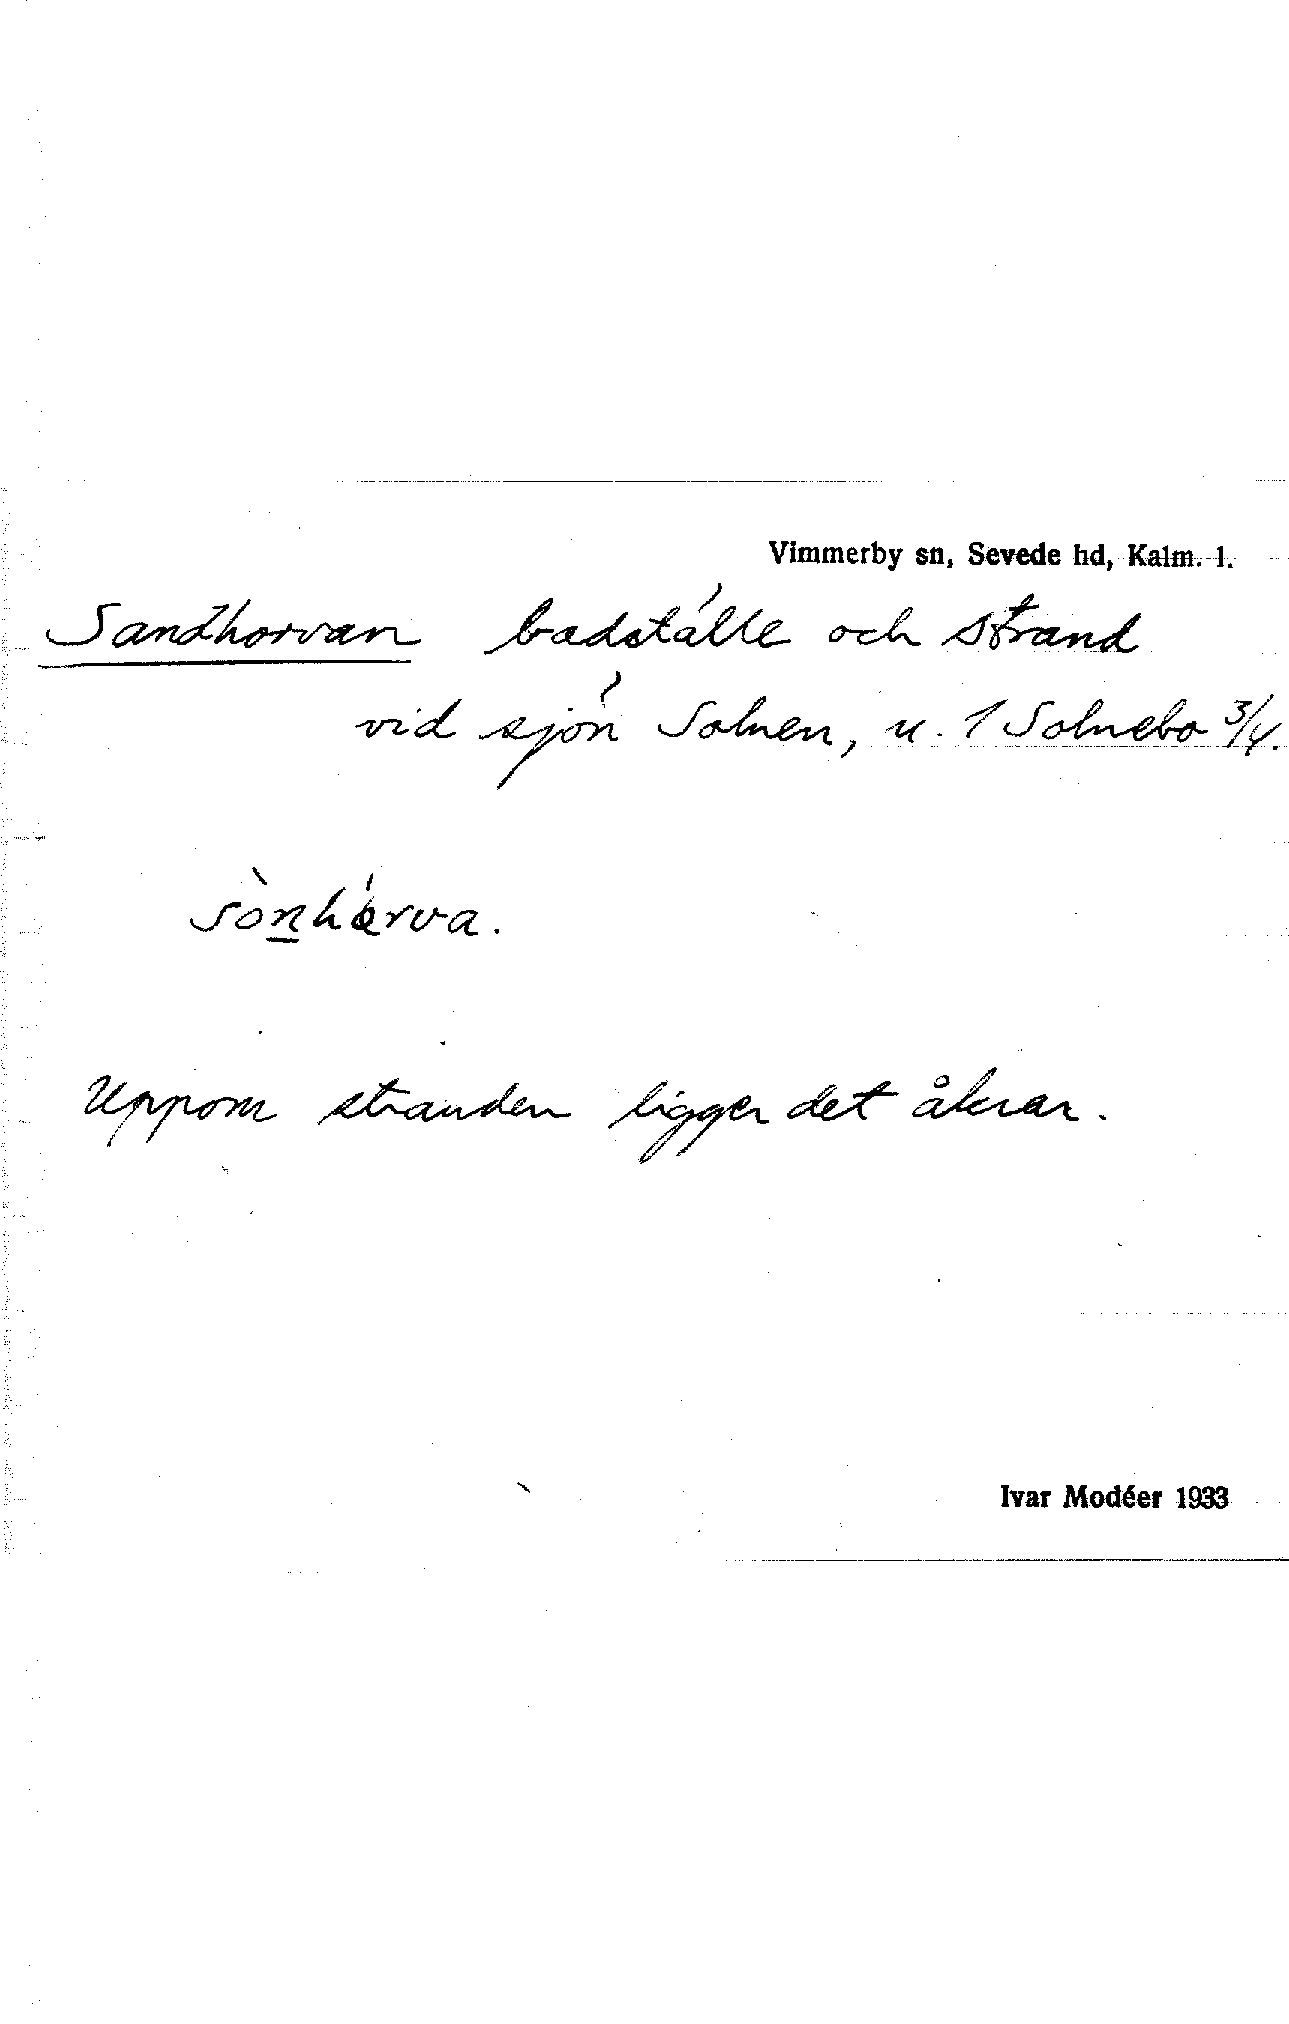 Vimmerby sn, Sevede hd, Kalm. l.
Sandhorvan badställe och strand
vid sjön Solnen, u. 1 Solnebo 3/4.
sònhórva.
Uppom stranden ligger det åkrar.
Ivar Modéer 1933